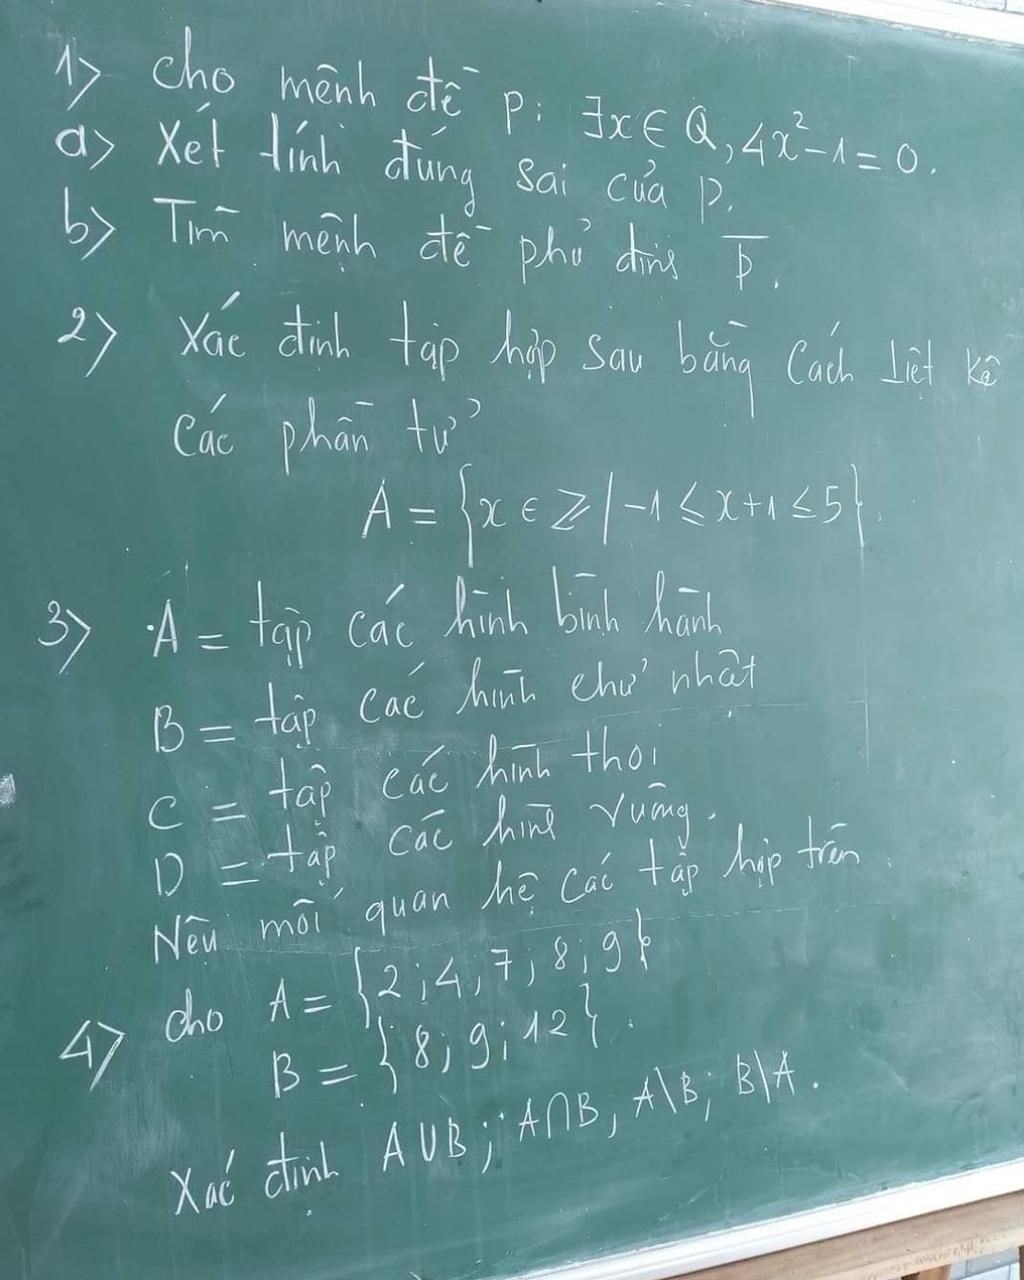 1) Cho mệnh đề P: ∃x ∈ Q, 4x² - 1 = 0.
a) Xét tính đúng sai của P.
b) Tìm mệnh đề phủ định P̅.
2) Xác định tập hợp sau bằng cách liệt kê
các phần tử
A = {x ∈ Z / -1 ≤ x+1 ≤ 5}.
3) A = tập các hình bình hành
B = tập các hình chữ nhật
C = tập các hình thoi
D = tập các hình vuông.
Nêu mối quan hệ các tập hợp trên.
4) Cho A = {2; 4; 7; 8; 9}
B = {8; 9; 12}.
Xác định A∪B; A∩B; A\B; B\A.